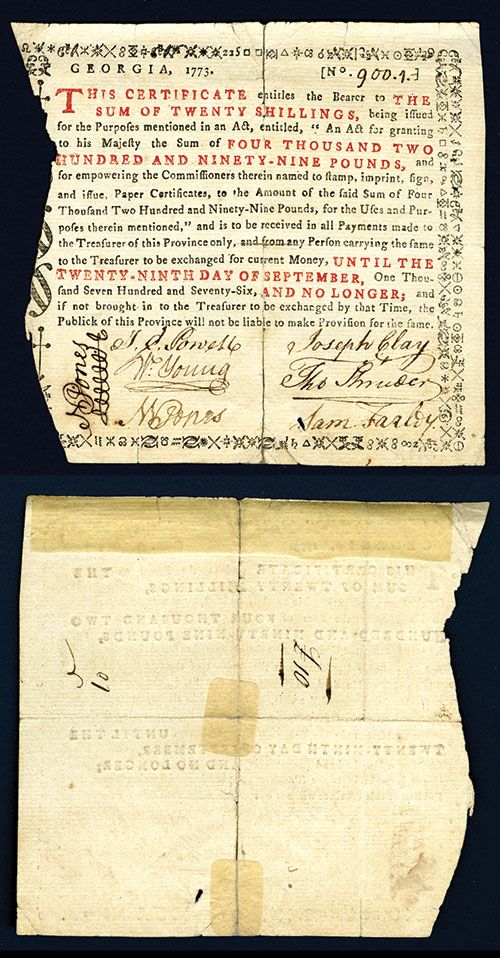 GEORGIA, 1773. [No. 9001.]
THIS CERTIFICATE entitles the Bearer to THE
SUM OF TWENTY SHILLINGS, being issued
for the Purposes mentioned in an Act, entitled, "An Act for granting
to his Majesty the Sum of FOUR THOUSAND TWO
HUNDRED AND NINETY-NINE POUNDS, and
for empowering the Commissioners therein named to stamp, imprint, sign,
and issue, Paper Certificates, to the Amount of the said Sum of Four
Thousand Two Hundred and Ninety-Nine Pounds, for the Uses and Pur-
poses therein mentioned," and is to be received in all Payments made to
the Treasurer of this Province only, and from any Person carrying the same
to the Treasurer to be exchanged for current Money, UNTIL THE
TWENTY-NINTH DAY OF SEPTEMBER, One Thou-
sand Seven Hundred and Seventy-Six, AND NO LONGER; and
if not brought in to the Treasurer to be exchanged by that Time, the
Publick of this Province will not be liable to make Provision for the same.
N Jones
J. S. Powell Joseph Clay
Wm. Young Tho
N Jones Sam Farley
£10
10